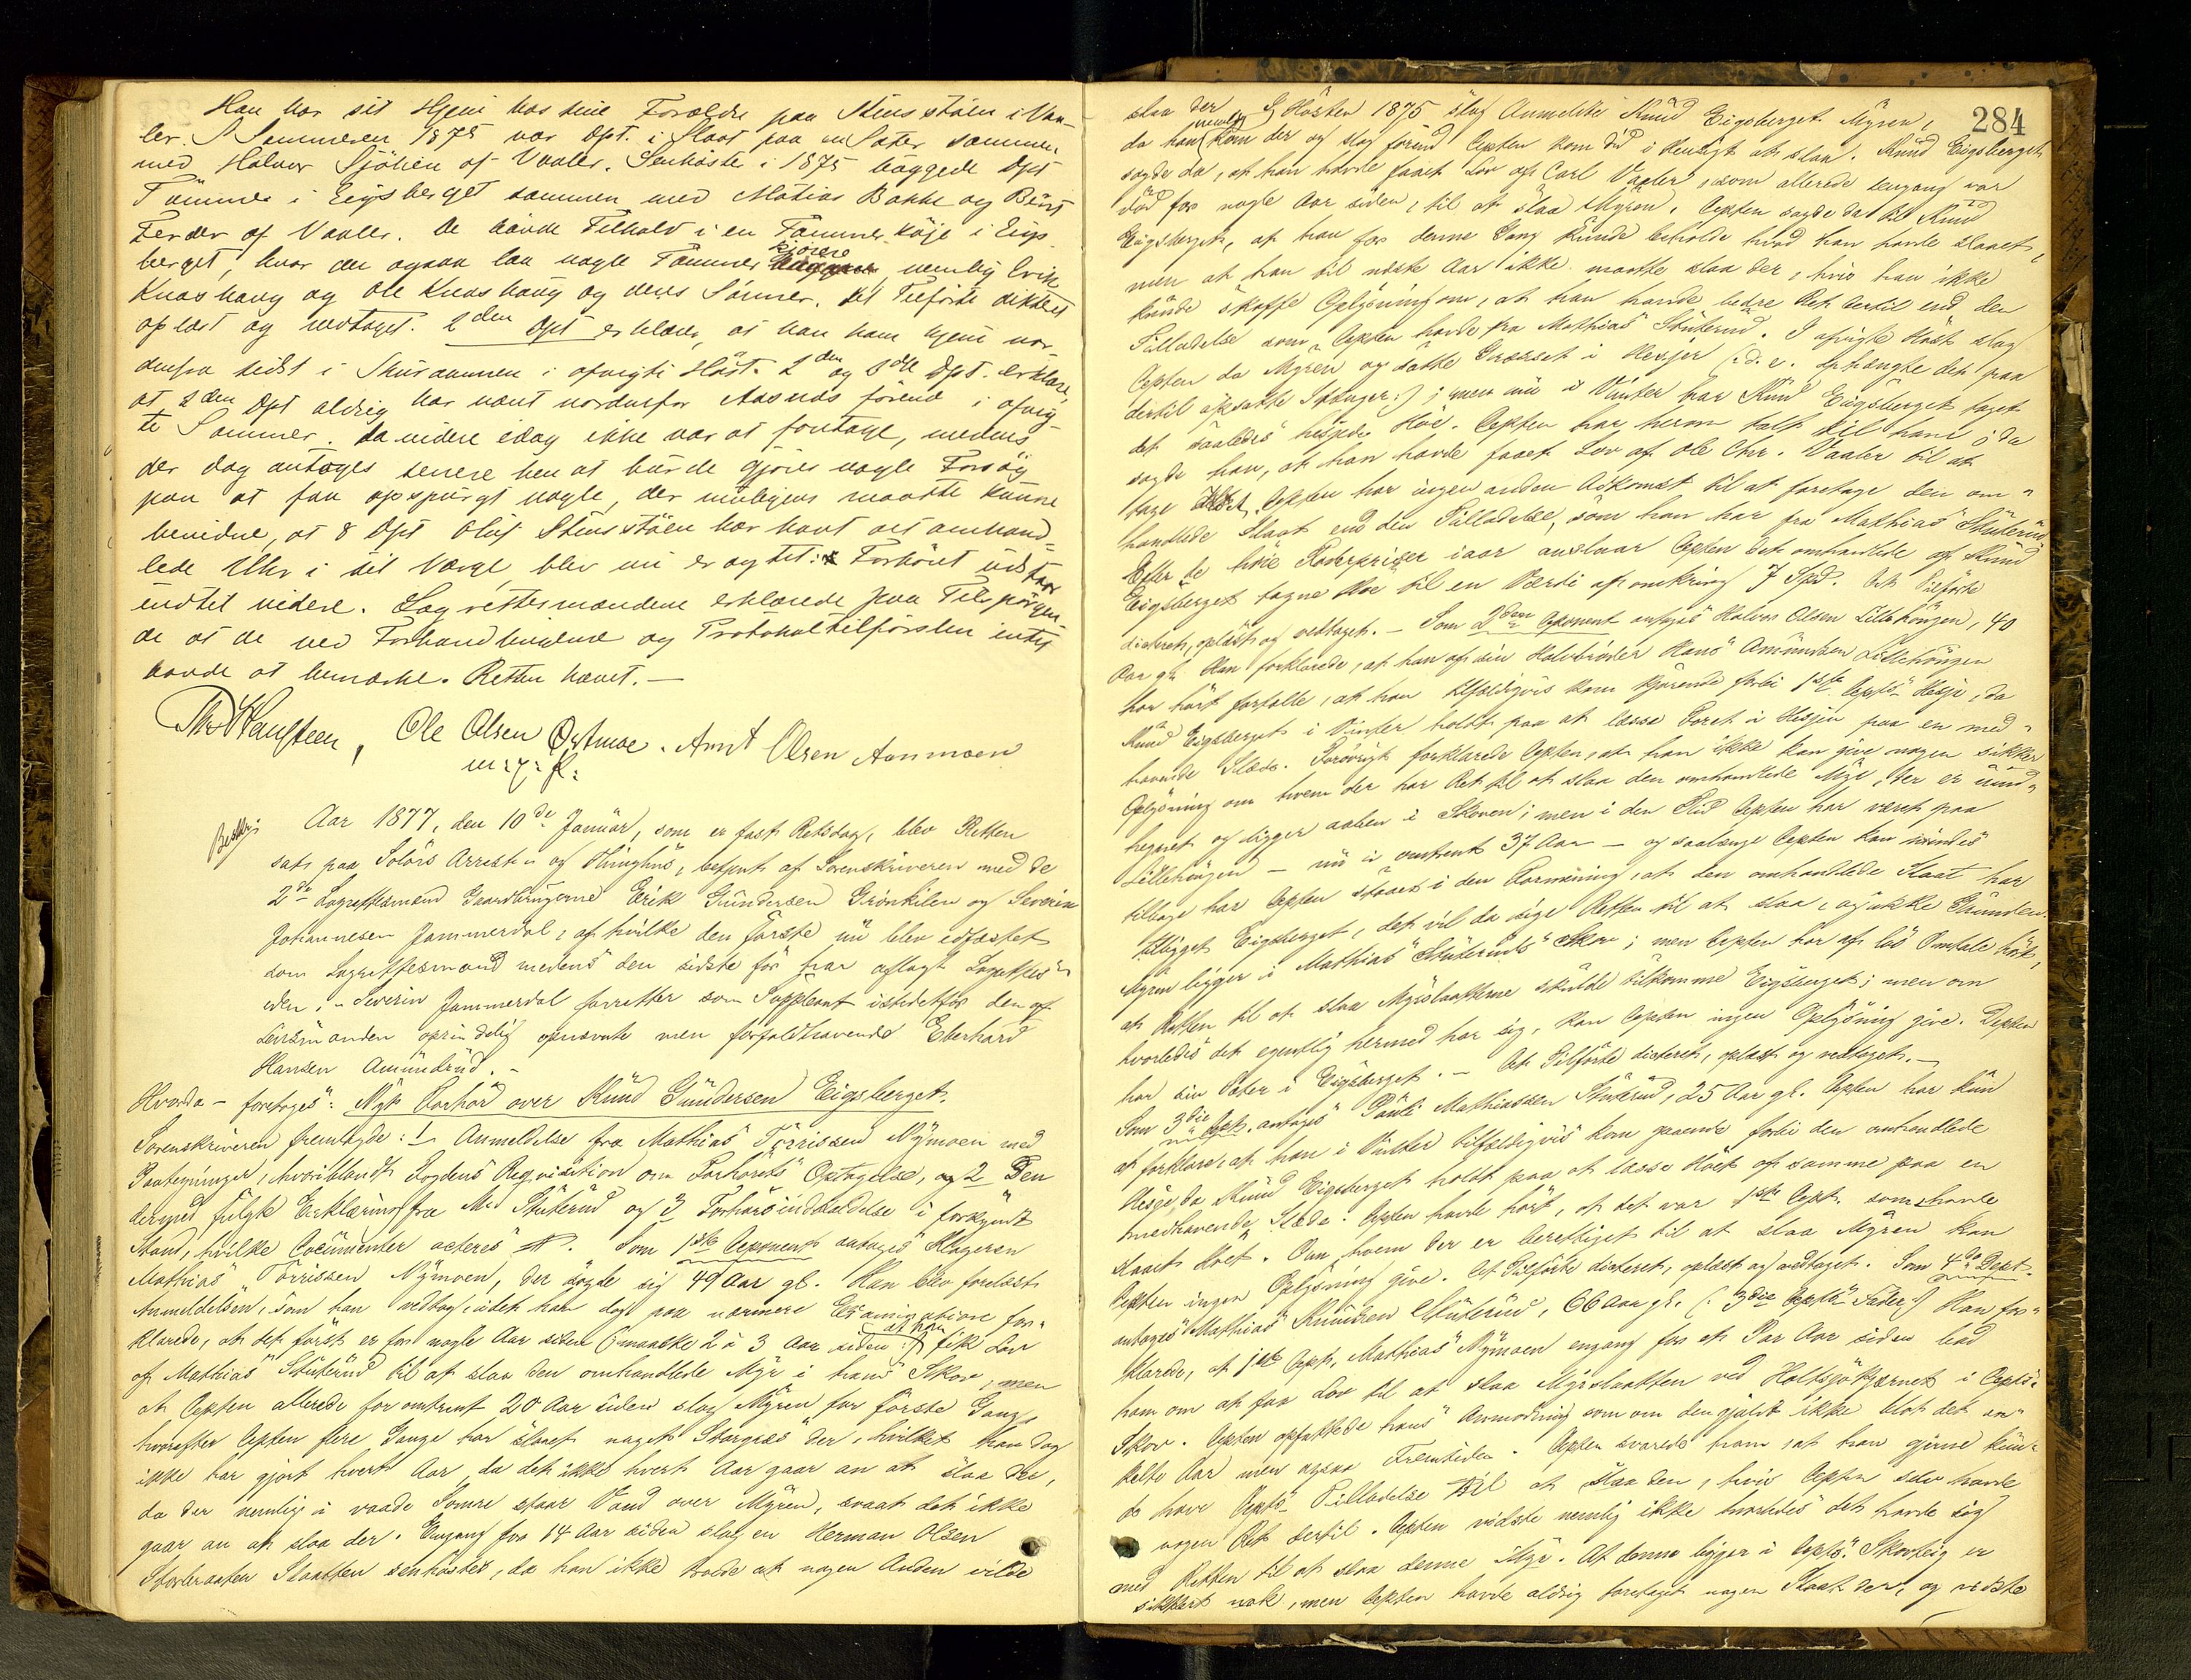 Han har sit Hjem hos sine Forældre paa Stensstöen i Vaa-
ler. I Sommeren 1875 var Dpt. i Slaat paa en Sæter sammen
med Halvor Sjölien af Vaaler. Senhöstes i 1875 huggede Dpt
Tömmer i Eigsberget sammen med Matias Bakke og Bernt
Ferder af Vaaler. De havde Tilhold i en Tömmerköje i Eigs-
berget, hvor der ogsaa laa nogle Tömmerkjörere nemlig Erik
Knashaug og Ole Knashaug og deres Sönner. Det Tilförte dikteret
oplæst og vedtaget. 2den Dpt erklærer, at han kom hjem nor-
denfra sidst i Skuraannen i afvigte Höst. 2den og 3die Dpt. erklærer,
at 2den Dpt aldrig har været nordenfor Aasnes förend i afvig-
te Sommer. Da videre idag ikke var at foretage, medens
der dog antages senere hen at burde gjöres nogle Forsög
paa at faa opspurgt nogle, der muligens maatte kunne
bevidne, at 8 Dpt Oluf Stensstöen har havt det omhand-
lede Uhr i sit Værge, blev nu eragtet: Forhöret udstaar
indtil videre. Lagrettesmændene erklærede paa Tilspörgen-
de at de ved Forhandlingerne og Protokoltilförslen intet
havde at bemærke. Retten hævet. —
Th. Hansteen, Ole Olsen Östmoe. Arnt Olsen Aanmoen
m. p. P.
Aar 1877, den 10de Januar, som er fast Retsdag, blev Retten
sat paa Solörs Arrest- og Thinghus, betjent af Sorenskriveren med de
2de Lagrettesmænd Gaardbrugerne Erik Gundersen Grönkilen og Severin
Johannesen Jammerdal, af hvilke den Förste nu blev edfæstet
som Lagrettesmand medens den sidste för har aflagt Lagrettes-
eden; Severin Jammerdal forretter som Suppleant istedetfor den af
Lensmanden oprindelig opnævnte men forfaldhavende Eberhard
Hansen Amundrud. -
Hvorda - foretoges: Nyt Forhör over Knud Gundersen Eigsberget.
Sorenskriveren fremlagde: 1 Anmeldelse fra Mathias Törrissen Nymoen med
Paategninger, hvoriblandt Fogdens Reqvisition om Forhörets Optagelse, og 2 Den
dermed fulgte Erklæring fra M. Stuterud og 3 Forhörsindkaldelse i forkyndt
Stand, hvilke Documenter acteres. Som 1ste Deponent antoges Klageren
Mathias Törrissen Nymoen, der sagde sig 49 Aar gl. Han blev forelæst
Anmeldelsen, som han vedtog, idet han dog paa nærmere Examination for-
klarede, at det först er for nogle Aar siden (: maaske 2 à 3 Aar siden :) at han fik Lov
af Mathias Stuterud til at slaa den omhandlede Myr i hans Skov, men
at Depten allerede for omtrent 20 Aar siden slog Myren for förste Gang,
hvorefter Depten flere Gange har slaaet noget Storgræs der, hvilket han dog
ikke har gjort hvert Aar, da det ikke hvert Aar gaar an at slaa der,
da der nemlig i vaade Somre staar Vand over Myren, saaat det ikke
gaar an at slaa der. Engang for 14 Aar siden slog en Herman Olsen
Storbraaten Slaatten senhöstes, da han ikke troede at nogen Anden vilde
284
slaa der. I Hösten 1875 slog Anmeldte Knud Eigsberget Myren,
da han nemlig kom der og slog förend Depten kom did i Hensigt at slaa. Knud Eigsberget
sagde da, at han havde faaet Lov af Carl Vaaler, som allerede dengang var
död for nogle Aar siden, til at slaa Myren. Depten sagde da til Knud
Eigsberget, at han for denne Gang kunde beholde hvad han havde slaaet,
men at han til næste Aar ikke maatte slaa der, hvis han ikke
kunde skaffe Oplysning om, at han havde bedre Ret dertil end den
Tilladelse som Depten havde fra Mathias Stuterud. I afvigte Höst slog
Depten da Myren og satte Græsset i Hesjer (: d. e. ophængte det paa
dertil opsatte Stænger :); men nu i Vinter har Knud Eigsberget taget
det saaledes hesjede Höe. Depten har herom talt til ham; da
sagde han, at han havde faaet Lov af Ole Chr. Vaaler til at
tage det. Depten har ingen anden Adkomst til at foretage den om-
handlede Slaat end den Tilladelse, som han har fra Mathias Stuterud.
Efter de höie Foderpriser iaar anslaar Depten det omhandlede af Knud
Eigsberget tagne Höe til en Værdi af omkring 7 Spd. Det Tilförte
dicteret, oplæst og vedtaget. - Som 2den Deponent antoges Halvor Olsen Lillehöngen, 40
Aar gl. Han forklarede, at han af sin Halvbroder Hans Amundsen Lillehöngen
har hört fortalle, at han tilfældigvis kom kjörende forbi 1ste Depts Hesje, da
Knud Eigsberget i Vinter holdt paa at læsse Foret i Hesjen paa en med-
havende Slæde. Forövrigt forklarede Depten, at han ikke kan give nogen sikker
Oplysning om hvem der har Ret til at slaa den omhandlede Myr, der er uind-
hegnet og ligger aaben i Skoven; men i den Tid Depten har været paa
Lillehöngen - nu i omtrent 37 Aar - og saalænge Depten kan mindes
tilbage har Depten staaet i den Formening, at den omhandlede Slaat har
tilligget Eigsberget, det vil da sige Retten til at slaa, og ikke Grunden.
Myren ligger i Mathias Stuteruds Skov; men Depten har af lös Omtale hört,
at Retten til at slaa Myrslaatterne skulde tilkomme Eigsberget; men om
hvorledes det egentlig hermed har sig, kan Depten ingen Oplysning give. Depten
har sin Sæter i Eigsberget. - Det Tilförte dicteret, oplæst og vedtaget. -
Som 3die Dept. antoges Pauli Mathiassen Stuterud, 25 Aar gl. Depten har kun
at forklare, at han i Vinter tilfældigvis kom gaaende forbi den omhandlede
Hesje, da Knud Eigsberget holdt paa at læsse Höet af samme paa en
medhavende Slæde. Depten havde hört, at det var 1ste Dept. som havde
slaaet Höet. Om hvem der er berettiget til at slaa Myren kan
Depten ingen Oplysning give. Det Tilförte dicteret, oplæst og vedtaget. Som 4de Dept.
antoges Mathias Knudsen Stuterud, 66 Aar gl. (: 3die Depts Fader :) Han for-
klarede, at 1ste Dept. Mathias Nymoen engang for et Par Aar siden bad
ham om at faa Lov til at slaa Myrslaatten ved Holtsjökjernet i Depts
Skov. Depten opfattede hans Anmodning som om den gjaldt ikke blot det en-
kelte Aar men ogsaa Fremtiden. Depten svarede ham, at han gjerne kun-
de have Depts Tilladelse til at slaa den, hvis Depten selv havde
nogen Ret dertil. Depten vidste nemlig ikke hvorledes det havde sig
med Retten til at slaa denne Myr. At denne ligger i Depts Skovteig er
sikkert nok, men Depten havde aldrig foretaget nogen Slaat der, og vidste